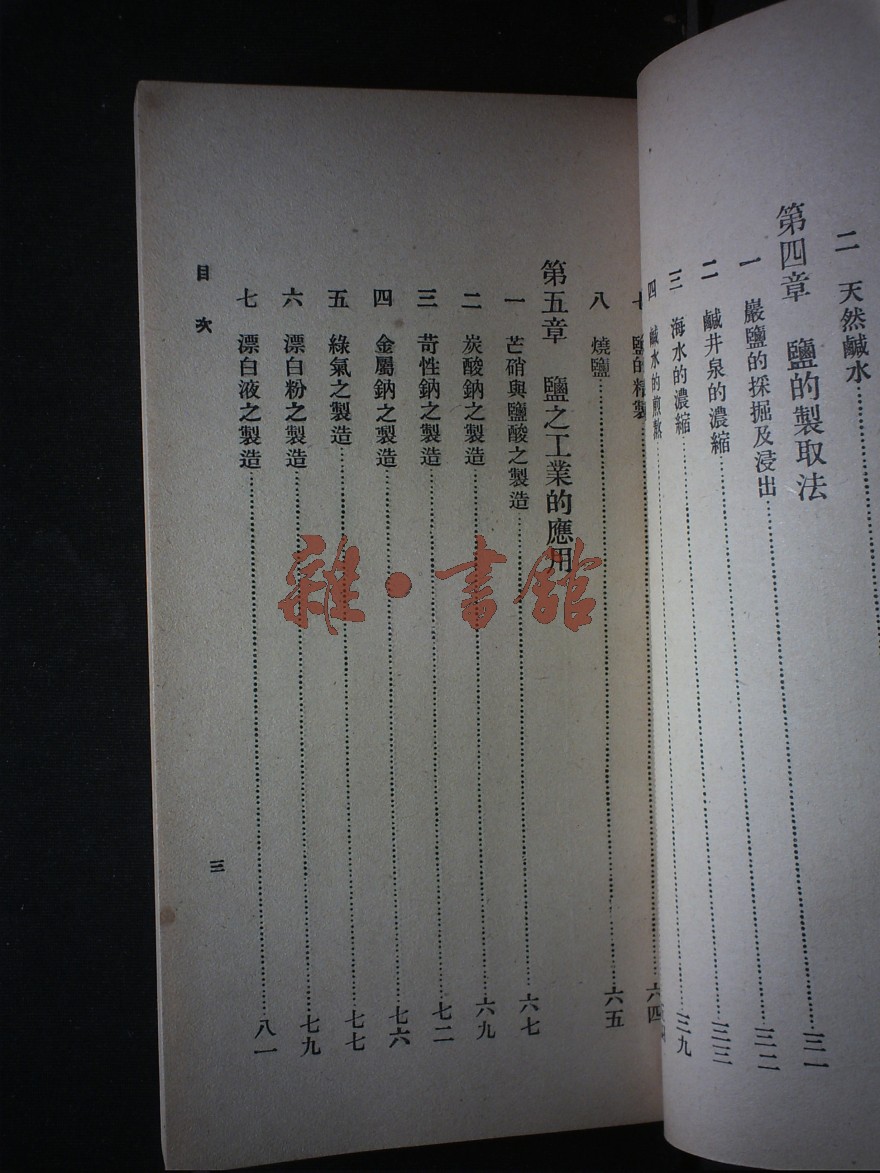 二　天然鹹水……
第四章　鹽的製取法
一　巖鹽的採掘及浸出……三一
二　鹹井泉的濃縮……三二
三　海水的濃縮……三三
四　鹹水的煎熬……三九
鹽的精製……六四
八　燒鹽……六五
第五章　鹽之工業的應用
一　芒硝與鹽酸之製造……六七
二　炭酸鈉之製造……六九
三　苛性鈉之製造……七二
四　金屬鈉之製造……七六
五　綠氣之製造……七七
六　漂白粉之製造……七九
七　漂白液之製造……八一
目次
三
雜·書館